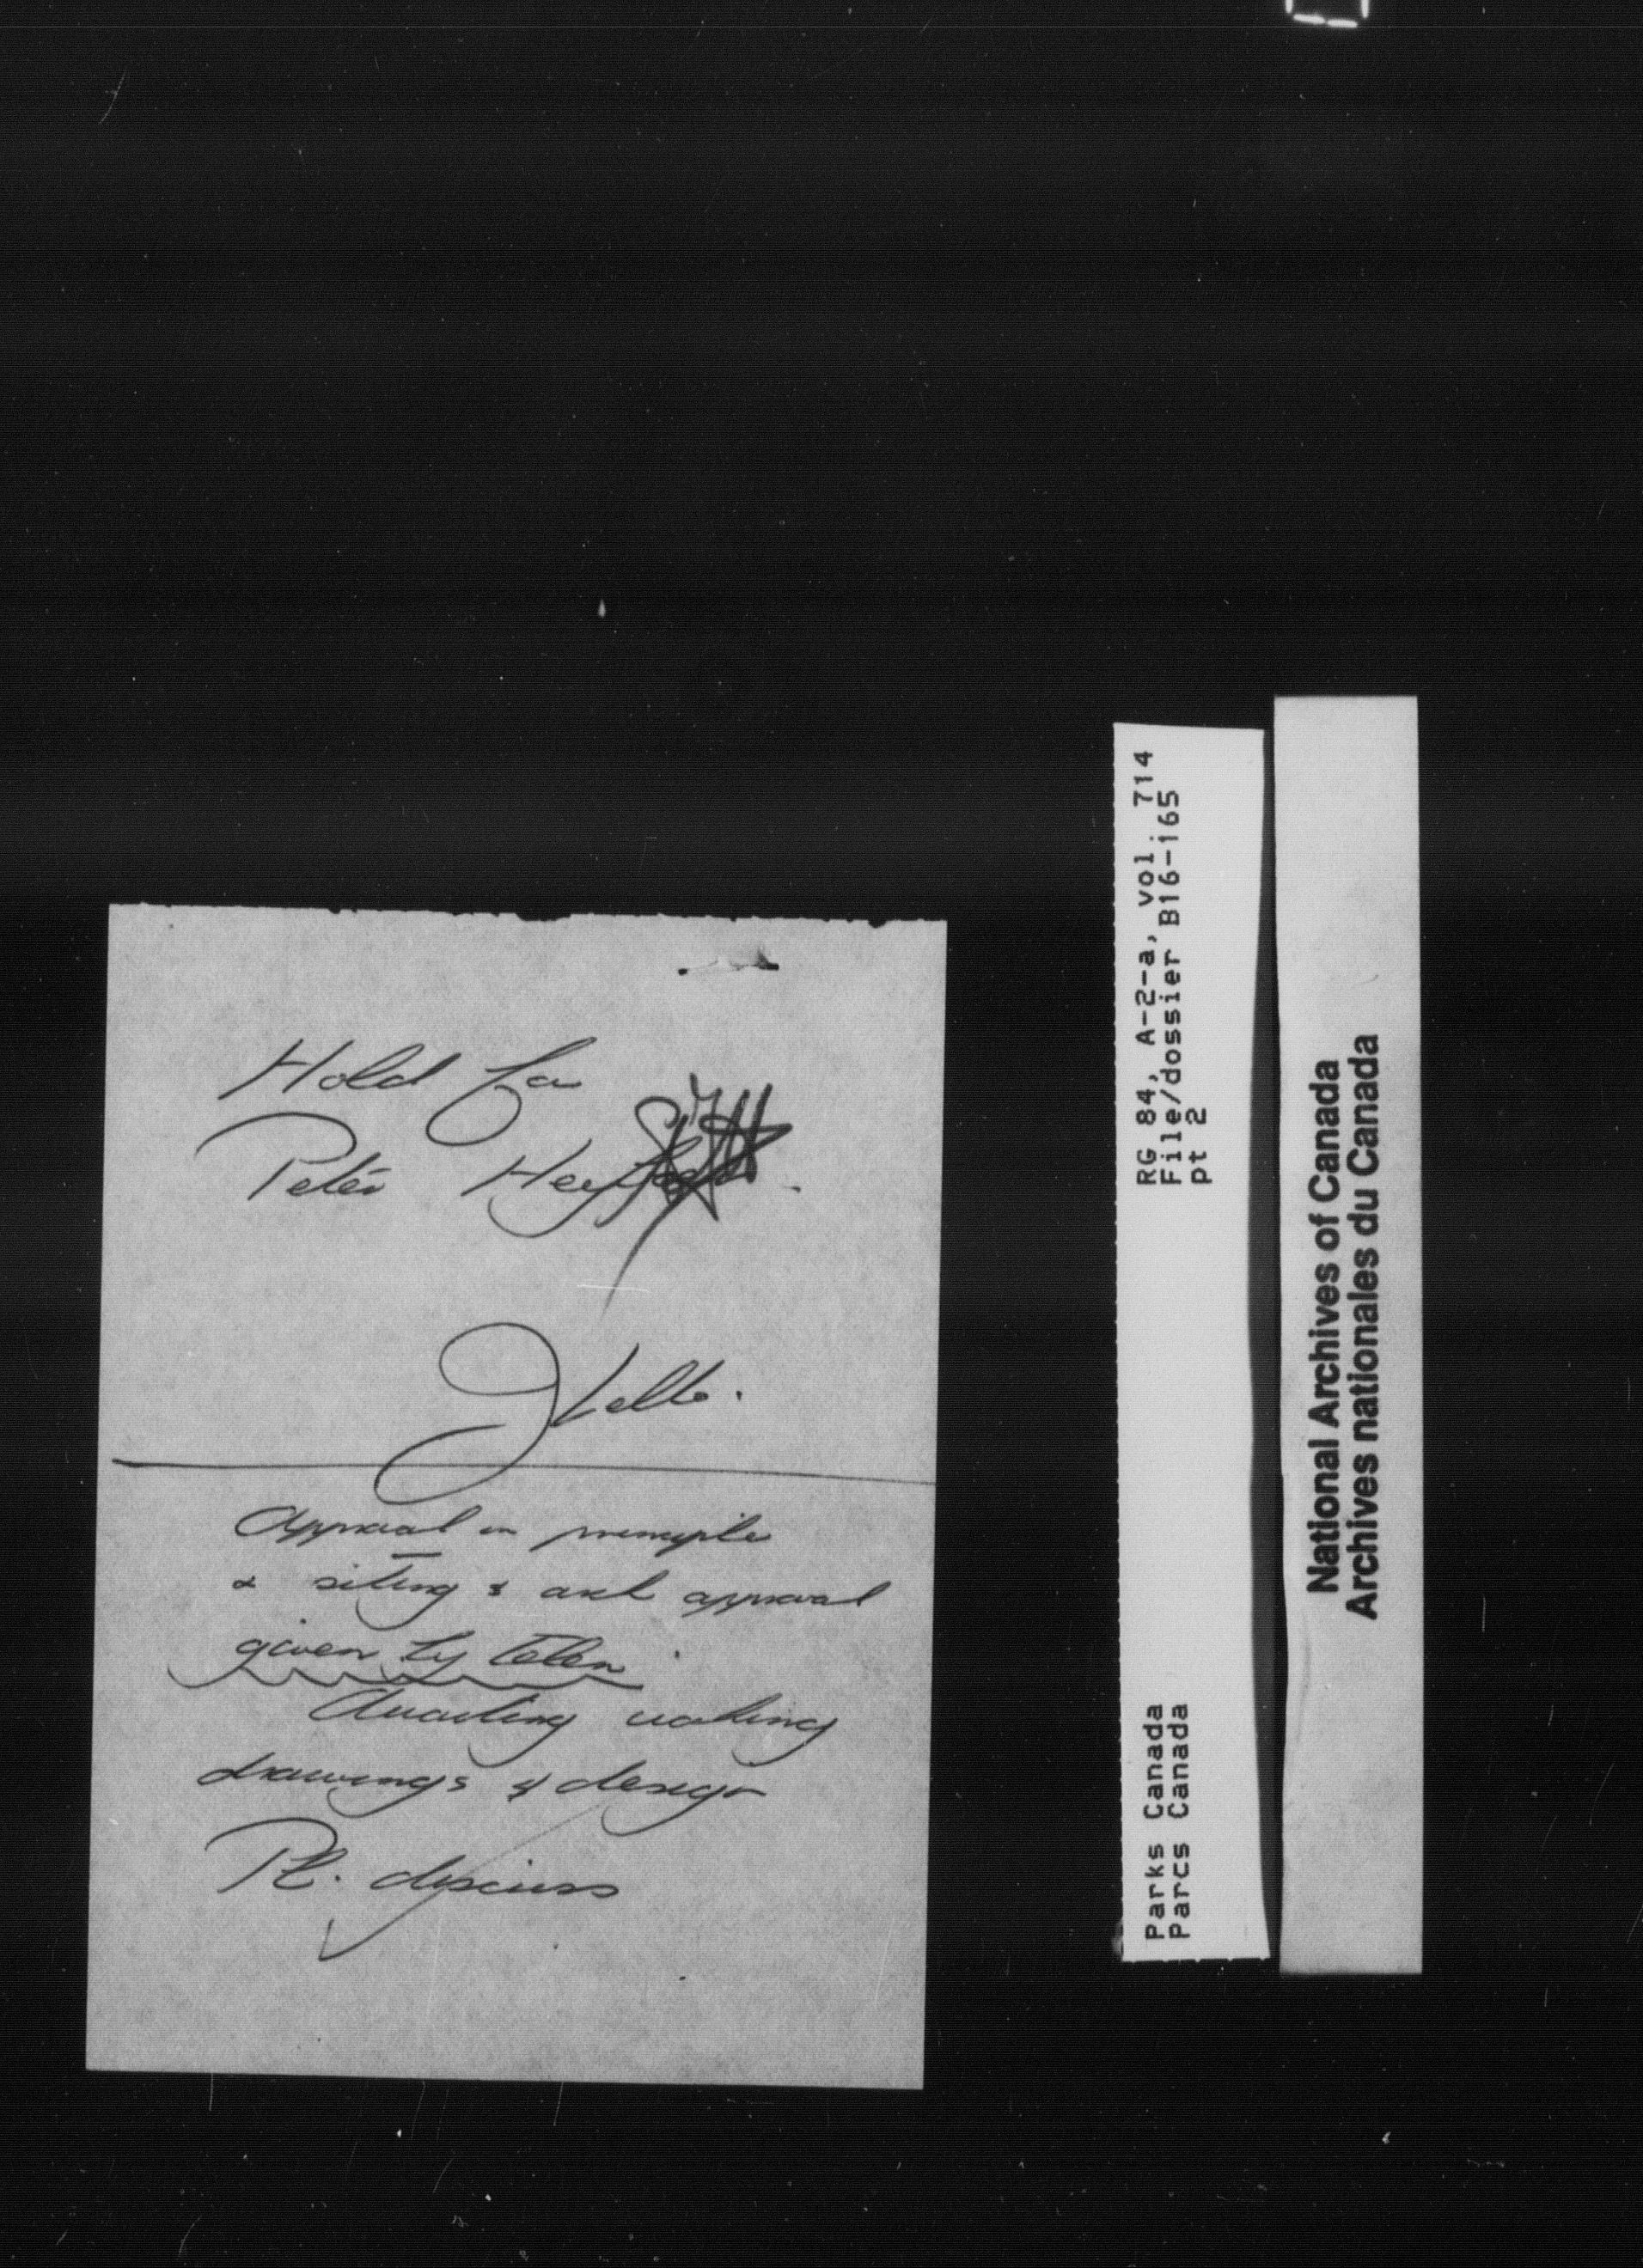 Hold for
Peter
Approval in principle
& siting & arch approval
given by telex
Awaiting working
drawings & design
Pl. discuss
RG 84, A-2-a, vol. 714
File/dossier B16-165
pt 2
Parks Canada
Parcs Canada
National Archives of Canada
Archives nationales du Canada